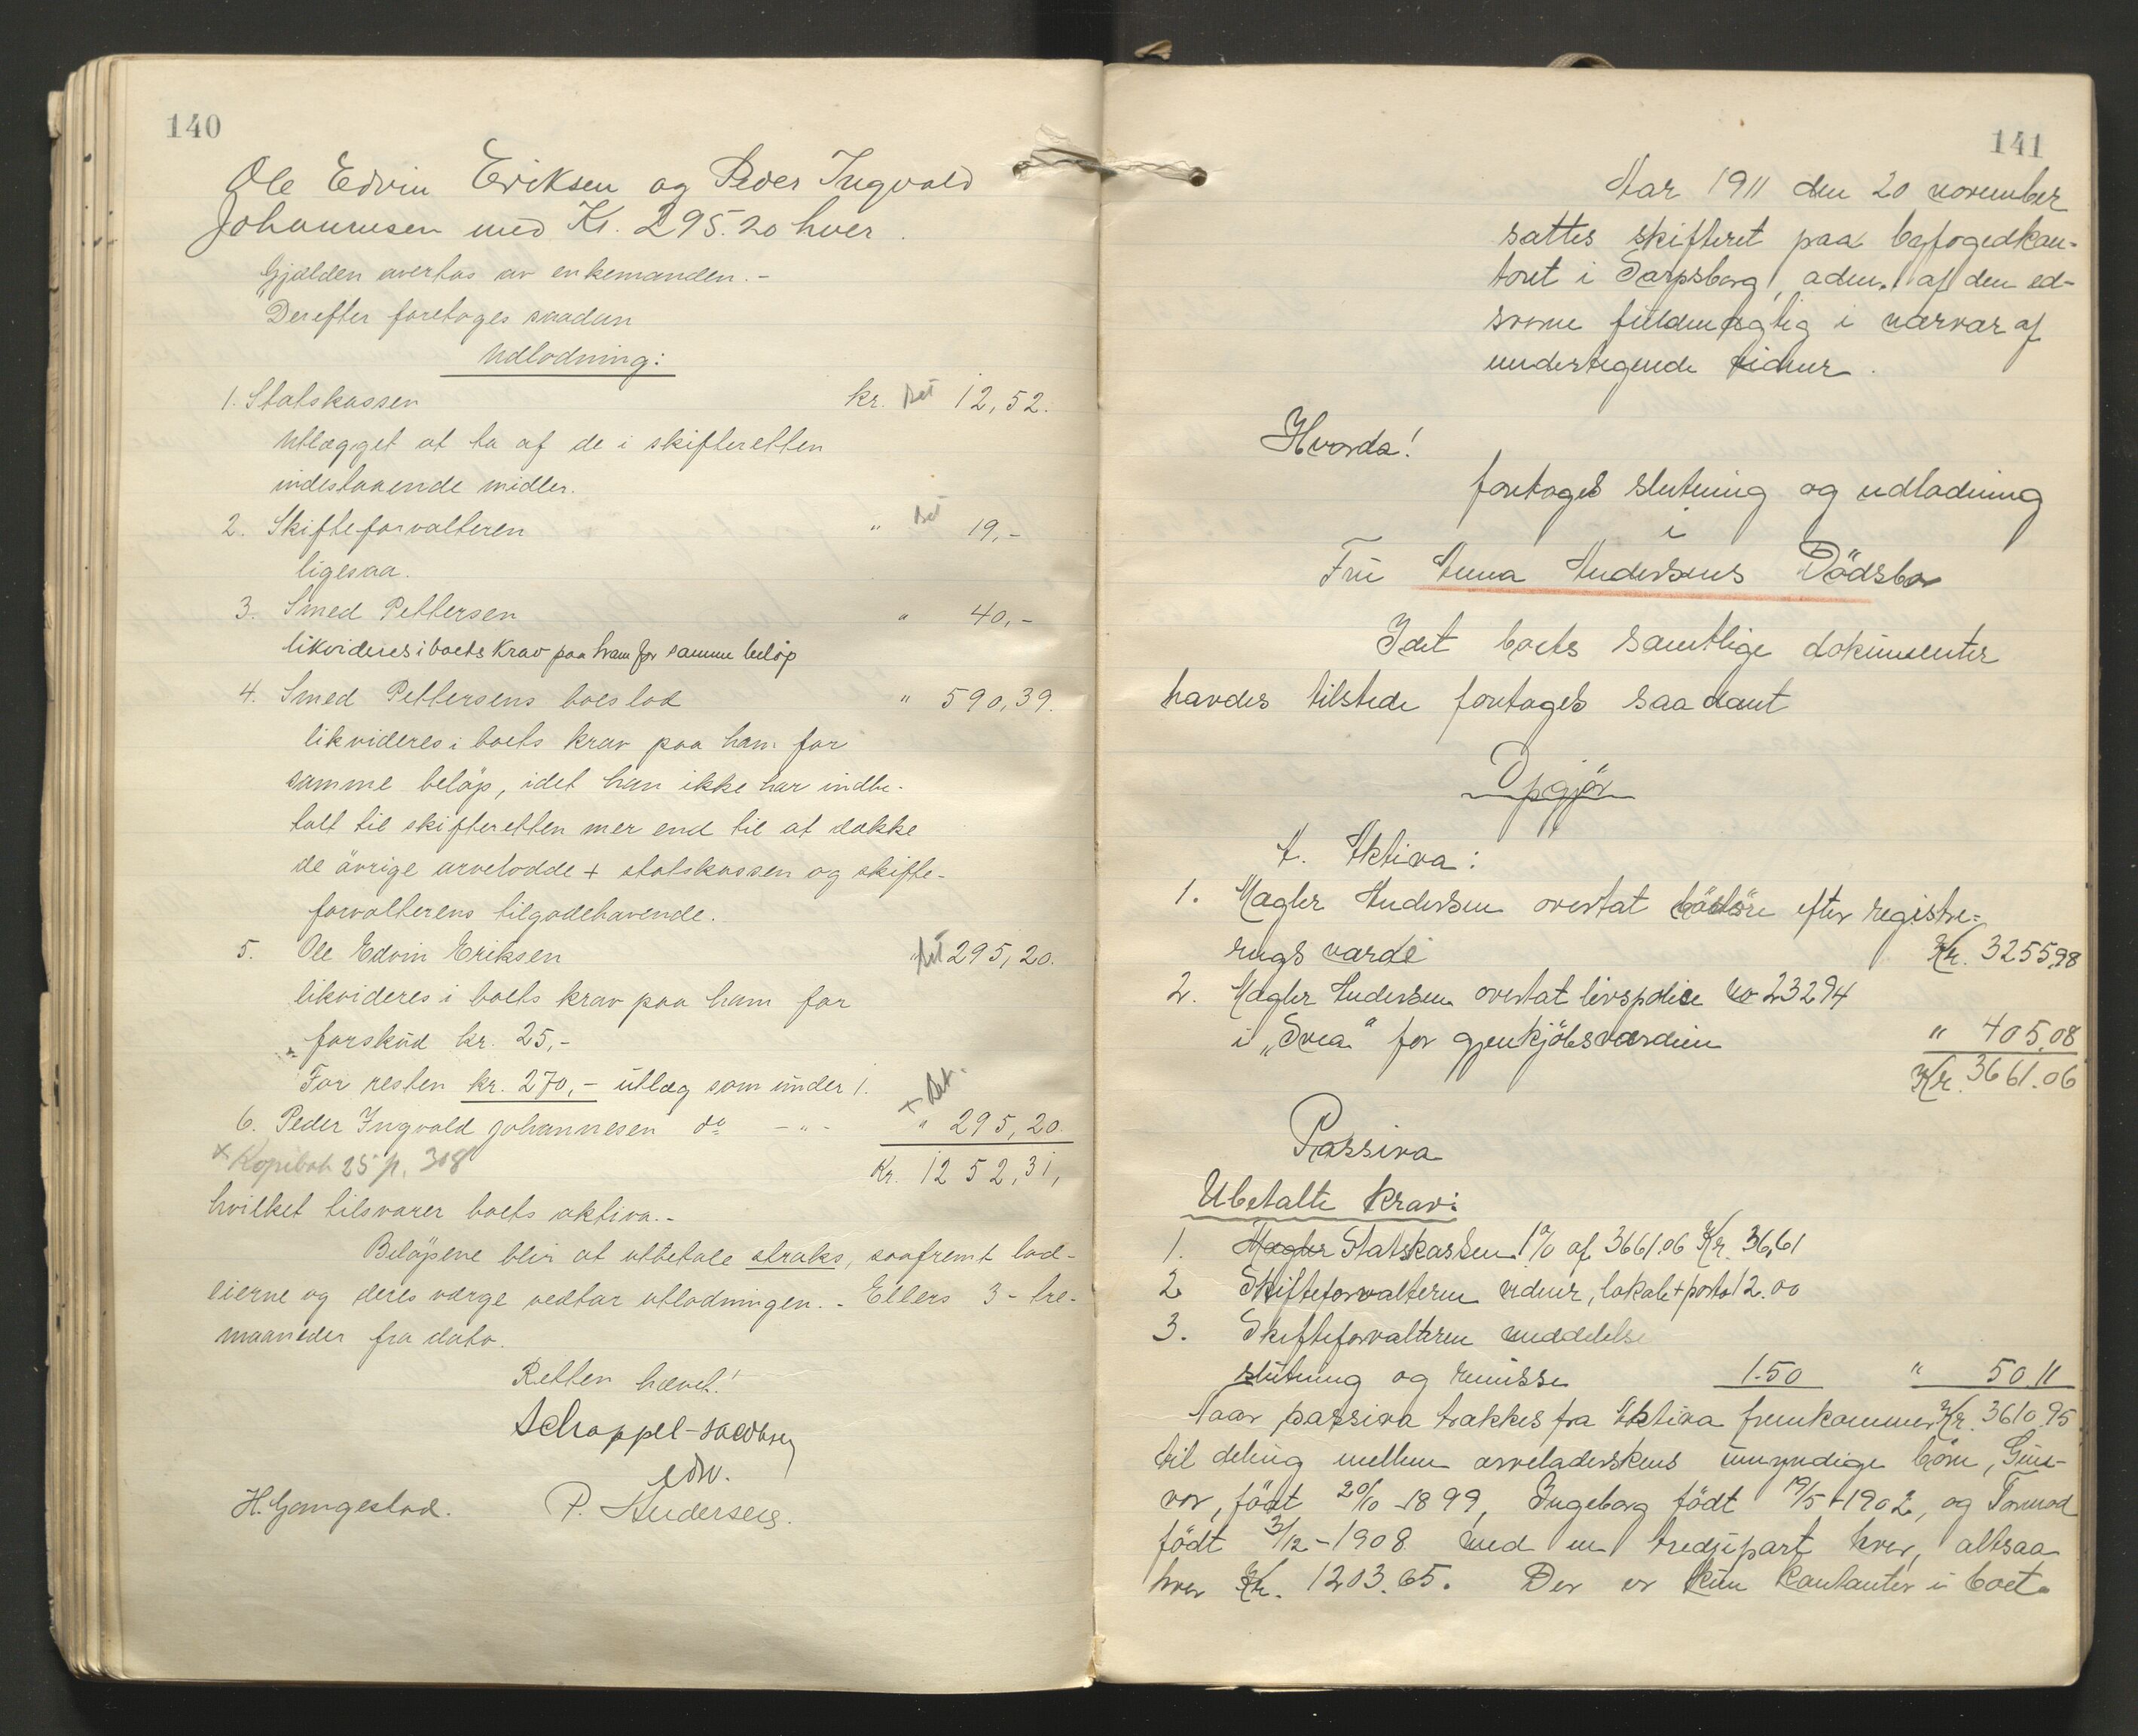 140
Ole Edvin Eriksen og Peder Ingvald
Johannesen med Kr. 295.20 hver.
Gjælden overtas av enkemanden.-
Derefter foretoges saadan
Udlodning:
1. Statskassen kr. Bet 12,52.
Utlægget at ta af de i skifteretten
indestaaende midler.
2. Skifteforvalteren " Bet 19,-
ligesaa.
3. Smed Pettersen " 40,-
likvideres i boets krav paa ham for samme beløp
4. Smed Pettersens boeslod " 590,39.
likvideres i boets krav paa ham for
samme beløp, idet han ikke har indbe-
talt til skifteretten mer end til at dække
de övrige arvelodde + statskassen og skifte-
forvalterens tilgodehavende.
5. Ole Edvin Eriksen " Bet 295,20.
likvideres i boets krav paa ham for
forskud kr. 25,-
For resten kr. 270,- utlæg som under 1.
6. Peder Ingvald Johannesen do -"- + Bet. " 295,20.
x Kopibok 25 p. 308
Kr. 1252,31,
hvilket tilsvarer boets aktiva.-
Beløpene blir at utbetale straks, saafremt lod-
eierne og deres værge vedtar utlodningen. - Ellers 3 - tre-
maaneder fra dato.
Retten hævet!
Schappel-Jacobsen
edsv.
H. Gangestad. P. Andersen.
141
Aar 1911 den 20 november
sattes skifteret paa byfogedkon-
toret i Sarpsborg, adm. af den ed-
svorne fuldmægtig i nærvær af
undertegnede vidner.
Hvorda!
foretoges slutning og udlodning
i
Fru Anna Andersens Dödsbo
Idet boets samtlige dokumenter
havdes tilstede foretoges saadant
Opgjör
A. Aktiva:
1. Mægler Andersen overtat lösöre efter registre-
rings værdi Kr. 3255.98
2. Mægler Andersen overtat livspolice No 23294
i "Svea" for gjenkjöbsværdien " 405.08
Kr. 3661.06
Passiva
Ubetalte krav:
1. Mægler Statskassen 1% af 3661.06 Kr. 36.61
2 Skifteforvalteren vidner, lokale + porto 12.00
3. Skifteforvalteren meddelelse
slutning og remisse 1.50 " 50.11
Naar passiva trækkes fra Aktiva fremkommer Kr. 3610.95
til deling mellem arveladerskens umyndige börn, Gun-
vor, födt 20/10-1899, Ingeborg födt 19/5-1902, og Tormod
födt 3/12-1908 med en tredjepart hver, altsaa
hver Kr. 1203.65. Der er kun kontanter i boet.